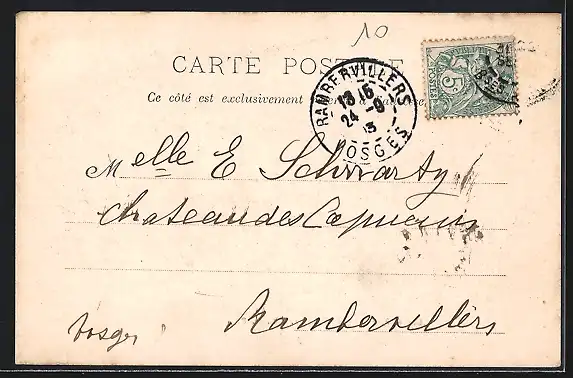 10
CARTE POSTALE
Ce côté est exclusivement
RAMBERVILLERS
13 15
24 -9
VOSGES
Melle E Schwartz
Chateau des Capucins
Rambervillers
Vosges